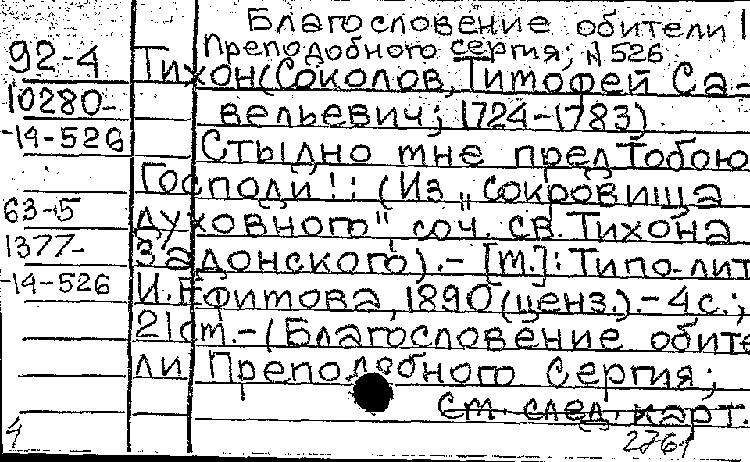 Благословение обители
Преподобного Сергия; N 526
92-4 Тихон (Соколов, Тимофей Са-
10280- вельевич; 1724-1783)
-14-526 Стыдно мне пред Тобою
Господи!: (Из „сокровища
63-5 духовного" соч. св. Тихона
1377- Задонского).- [М.]: Типо-лит
-14-526 И. Ефимова, 1890 (ценз.).- 4с.;
21см.-(Благословение обите
ли Преподобного Сергия;
См. след. карт.
4 2761